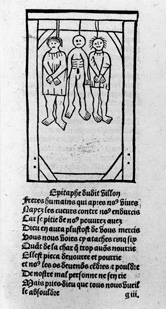 Epitaphe dudit villon
Freres humains qui apres no⁹ viues
Nayez les cueurs contre no⁹ endurcis
Car se pitie de no⁹ pouurez auez
Dieu en aura plustost de vous mercis
Vous nous voies cy ataches cinq six
Quāt de la char q̄ trop auōs nourrie
Ellest pieca deuouree et pourrie
et no⁹ les os deuenōs cēdres a pouldre
De nostre mal personne ne sen rie
Mais priez dieu que tous nous vueil
le absouldre